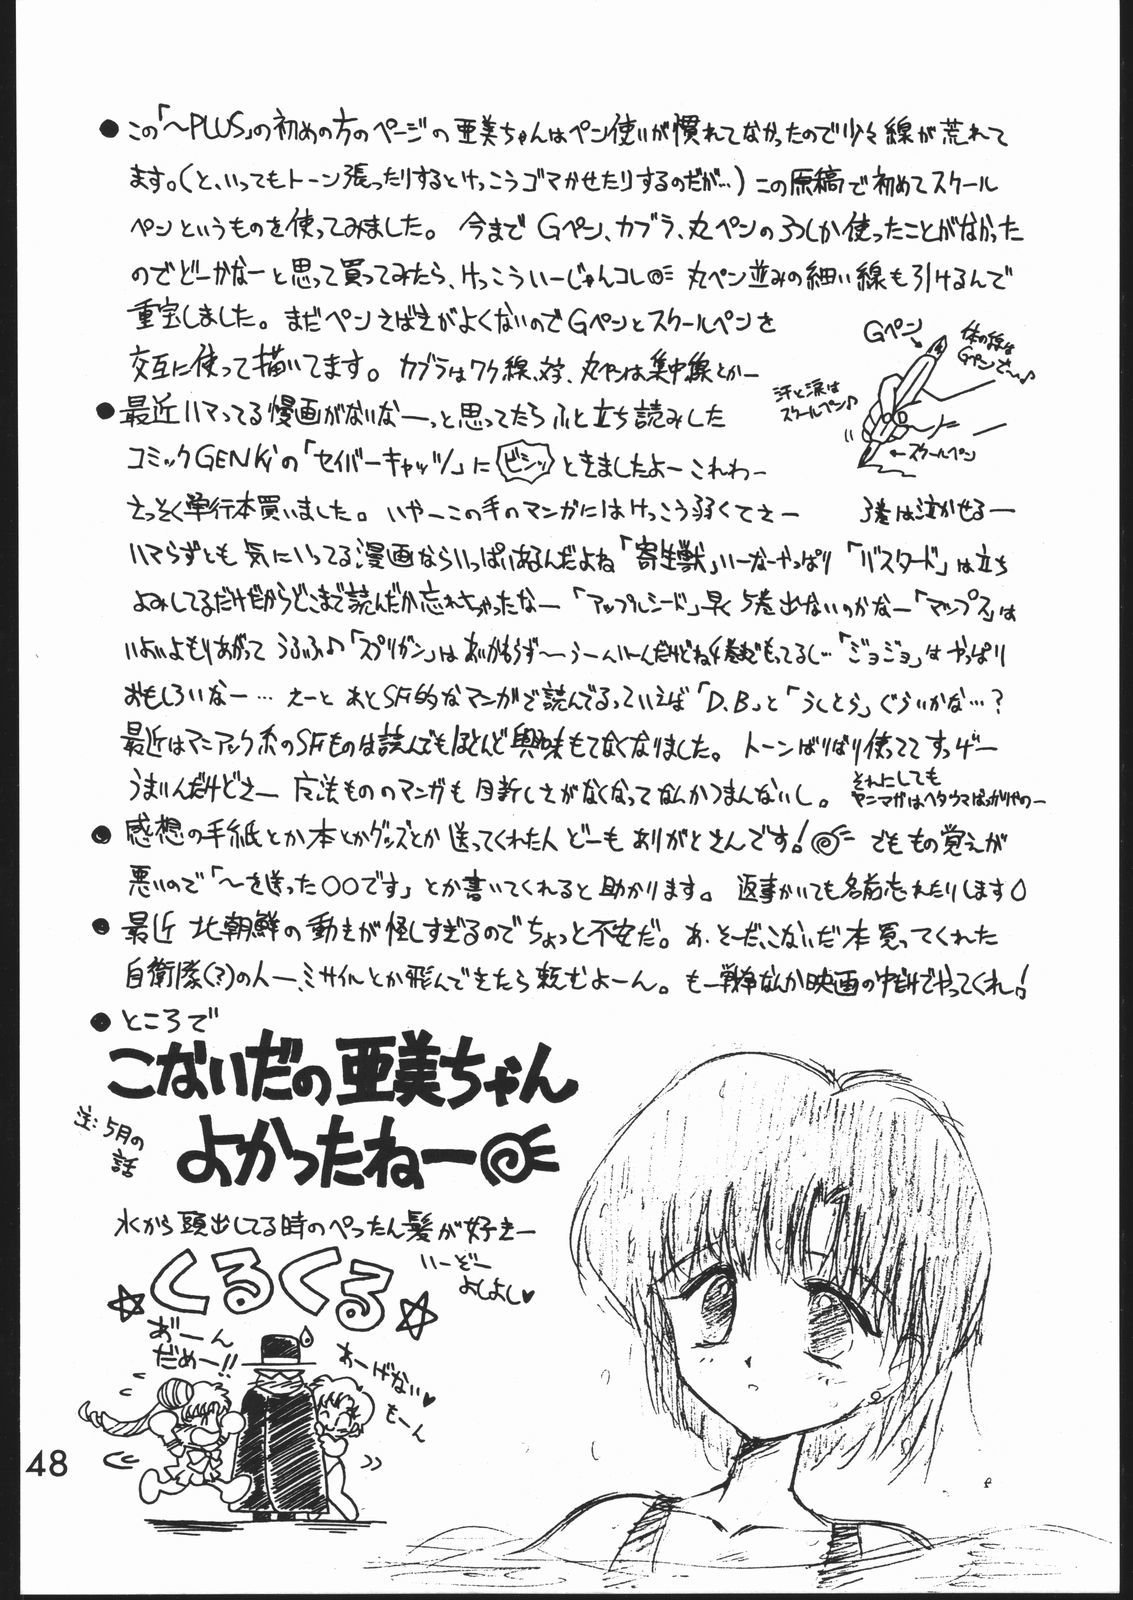 ●この「～PLUS」の初めの方のページの亜美ちゃんはペン使いが慣れてなかったので少々線が荒れて
ます。(と、いってもトーン張ったりするとけっこうゴマかせたりするのだが…)この原稿で初めてスクール
ペンというものを使ってみました。今までGペン、カブラ、丸ペンの3つしか使ったことがなかった
のでどーかなーと思って買ってみたら、けっこういーじゃんコレ 丸ペン並みの細い線も引けるんで
重宝しました。まだペンさばきがよくないのでGペンとスクールペンを
交互に使って描いてます。カブラはワク線、丸ペンは集中線とかー
Gペン
体の線は
Gペンさ～♪
汗と涙は
スクールペン♪
←スクールペン
●最近ハマってる漫画がないなーっと思ってたらふと立ち読みした
コミックGENKiの「セイバーキャッツ」に ビシッ ときましたよーこれわー
さっそく単行本買いました。いやーこの手のマンガにはけっこう弱くてさー 3巻は泣かせるー
ハマらずとも気にいってる漫画ならいっぱいあるんだよね「寄生獣」いーなーやっぱり「バスタード」は立ち
よみしてるだけだからどこまで読んだか忘れちゃったなー「アップルシード」早く5巻出ないのかなー「マップス」は
いよいよもりあがって うふふ♪「スプリガン」はあいかもらず～うーんいーんだけどね4巻までもってるし…「ジョジョ」はやっぱり
おもしろいなー…えーと あとSF的なマンガで読んでるっていえば「D.B」と「うしとら」ぐらいかな…?
最近はマニアック系のSFものは読んでもほとんど興味もてなくなりました。トーンばりばり使っててすっげー
うまいんだけどさー 魔法もののマンガも目新しさがなくなってなんかつまんないし。
それにしても
ヤンマガはヘタウマばっかりやのー
●感想の手紙とか本とかグッズとか送ってくれた人どーもありがとさんです! でももの覚えが
悪いので「～を送った○○です」とか書いてくれると助かります。返事かいても名前忘れたりします
●最近北朝鮮の動きが怪しすぎるのでちょっと不安だ。あ、そーだ、こないだ本買ってくれた
自衛隊(?)の人ー、ミサイルとか飛んできたら頼むよーん。もー戦争なんか映画の中だけでやってくれ!
●ところで
こないだの亜美ちゃん
よかったねー
注:5月の
話
水から頭出してる時のぺったん髪が好きー
いーぞー
よしよし♥
☆くるくる☆
あ゛ーん
だめー!!
あーげない♥
もーん
48